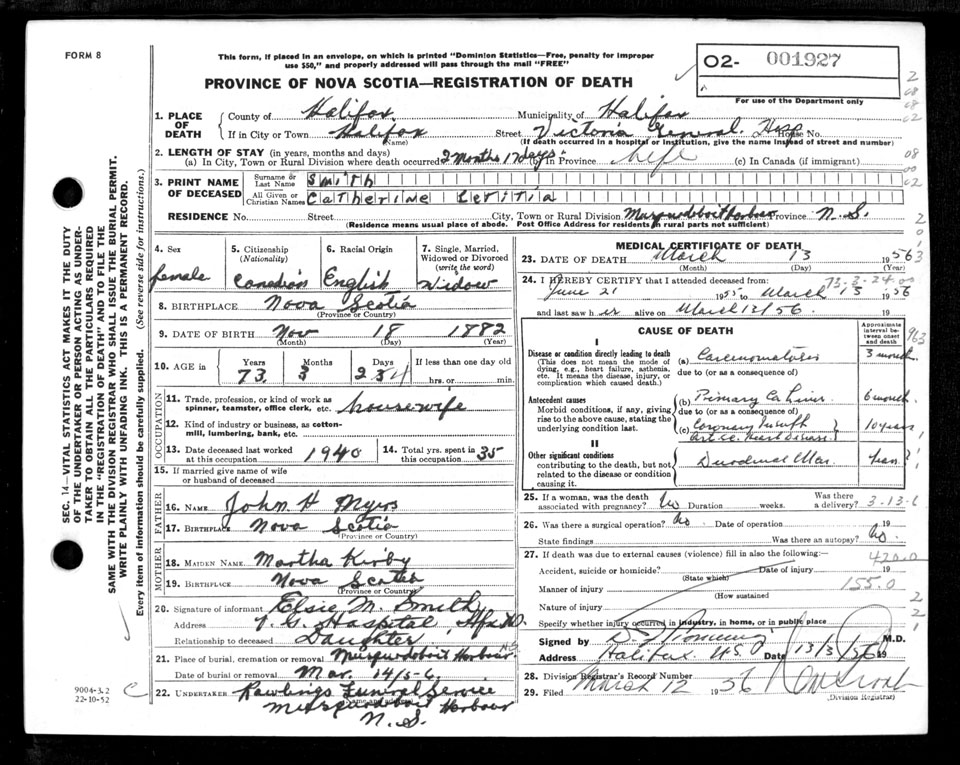 FORM 8
This form, if placed in an envelope, on which is printed "Dominion Statistics—Free, penalty for improper
use $50," and properly addressed will pass through the mail "FREE"
PROVINCE OF NOVA SCOTIA—REGISTRATION OF DEATH
O2- 001927
For use of the Department only
1. PLACE OF DEATH
County of Halifax Municipality of Halifax
If in City or Town Halifax Street Victoria General Hosp House No.
(Name) (If death occurred in a hospital or institution, give the name instead of street and number)
2. LENGTH OF STAY (in years, months and days)
(a) In City, Town or Rural Division where death occurred 2 months 1 days (b) In Province life (c) In Canada (if immigrant)
3. PRINT NAME OF DECEASED
Surname or Last Name Smith
All Given or Christian Names Catherine Letitia
RESIDENCE No. Street City, Town or Rural Division Musquodoboit Harbour Province N.S.
(Residence means usual place of abode. Post Office Address for residents in rural parts not sufficient)
4. Sex female
5. Citizenship (Nationality) Canadian
6. Racial Origin English
7. Single, Married, Widowed or Divorced (write the word) Widow
8. BIRTHPLACE Nova Scotia
(Province or Country)
9. DATE OF BIRTH Nov 18 1882
(Month) (Day) (Year)
10. AGE in Years 73 Months 3 Days If less than one day old hrs. or min.
OCCUPATION
11. Trade, profession, or kind of work as spinner, teamster, office clerk, etc. housewife
12. Kind of industry or business, as cotton-mill, lumbering, bank, etc.
13. Date deceased last worked at this occupation 1940
14. Total yrs. spent in this occupation 35
15. If married give name of wife or husband of deceased
FATHER
16. NAME John H Myers
17. BIRTHPLACE Nova Scotia
(Province or Country)
MOTHER
18. MAIDEN NAME Martha Kirby
19. BIRTHPLACE Nova Scotia
(Province or Country)
20. Signature of informant Elsie M. Smith
Address V. G. Hospital, Hfx
Relationship to deceased Daughter
21. Place of burial, cremation or removal Musquodoboit Harbour N.S.
Date of burial or removal Mar. 14/56
22. UNDERTAKER Rawlings Funeral Service
(Name and address)
Musquodoboit Harbour
N. S.
MEDICAL CERTIFICATE OF DEATH
23. DATE OF DEATH March 13 1956
(Month) (Day) (Year)
24. I HEREBY CERTIFY that I attended deceased from:
June 21 1955 to March 13 1956
and last saw her alive on March 13/56
CAUSE OF DEATH
Approximate interval between onset and death
I
Disease or condition directly leading to death (a) Carcinomatosis 3 months
(This does not mean the mode of dying, e.g., heart failure, asthenia, etc. It means the disease, injury, or complication which caused death.)
due to (or as a consequence of)
Antecedent causes (b) Primary Ca 6 month
Morbid conditions, if any, giving rise to the above cause, stating the underlying condition last.
due to (or as a consequence of)
(c) Coronary Insuff 10 years
Heart Disease
II
Other significant conditions Duodenal Years
contributing to the death, but not related to the disease or condition causing it.
25. If a woman, was the death associated with pregnancy? No Duration weeks. Was there a delivery?
26. Was there a surgical operation? No Date of operation 19
State findings Was there an autopsy? No
27. If death was due to external causes (violence) fill in also the following:—
420.0
Accident, suicide or homicide? Date of injury 19
(State which)
Manner of injury 155.0
(How sustained
Nature of injury
Specify whether injury occurred in industry, in home, or in public place
Signed by M.D.
Address Halifax N.S. Date 13/3/56 19
28. Division Registrar's Record Number
29. Filed March 12 1956
(Division Registrar)
SEC. 14—VITAL STATISTICS ACT MAKES IT THE DUTY
OF THE UNDERTAKER OR PERSON ACTING AS UNDER-
TAKER TO OBTAIN ALL THE PARTICULARS REQUIRED
IN THE "REGISTRATION OF DEATH" AND TO FILE THE
SAME WITH THE DIVISION REGISTRAR WHO SHALL ISSUE THE BURIAL PERMIT.
WRITE PLAINLY WITH UNFADING INK. THIS IS A PERMANENT RECORD.
Every item of information should be carefully supplied. (See reverse side for instructions.)
9004-3.2
22-10-52